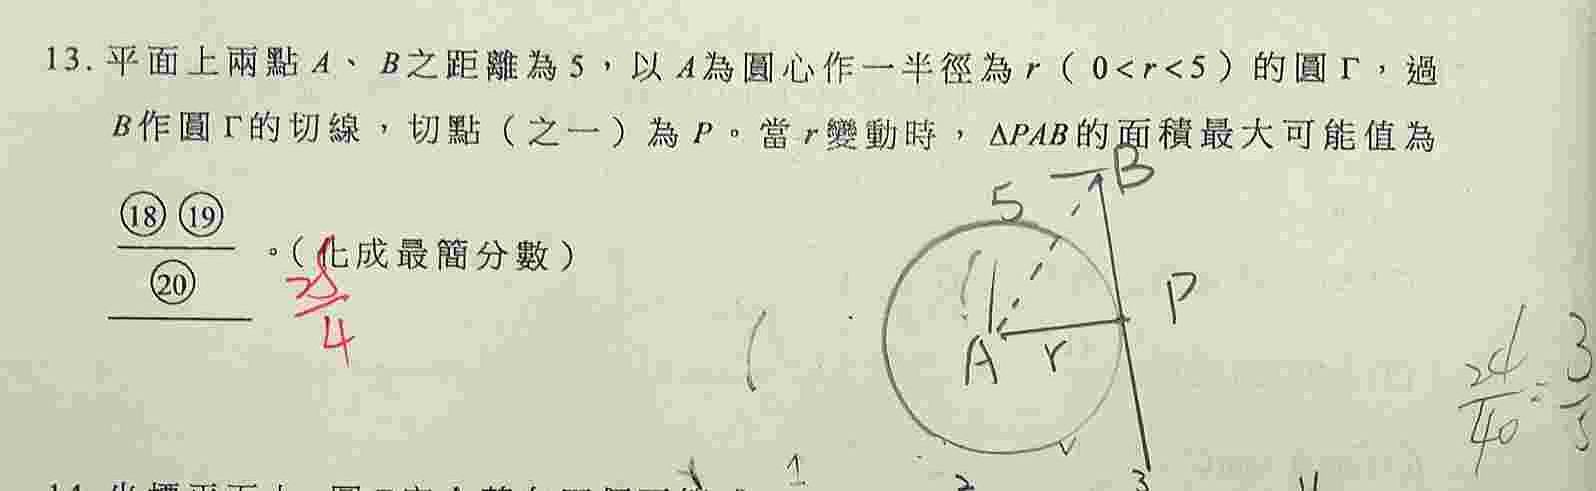 13. 平面上兩點 A、B之距離為 5，以 A為圓心作一半徑為 r（0<r<5）的圓 Γ，過
B作圓 Γ的切線，切點（之一）為 P。當 r變動時，ΔPAB的面積最大可能值為
⑱ ⑲
⑳
。(化成最簡分數)
25
4
B
5
P
A
r
24
40
=
3
5
1
2
3
4